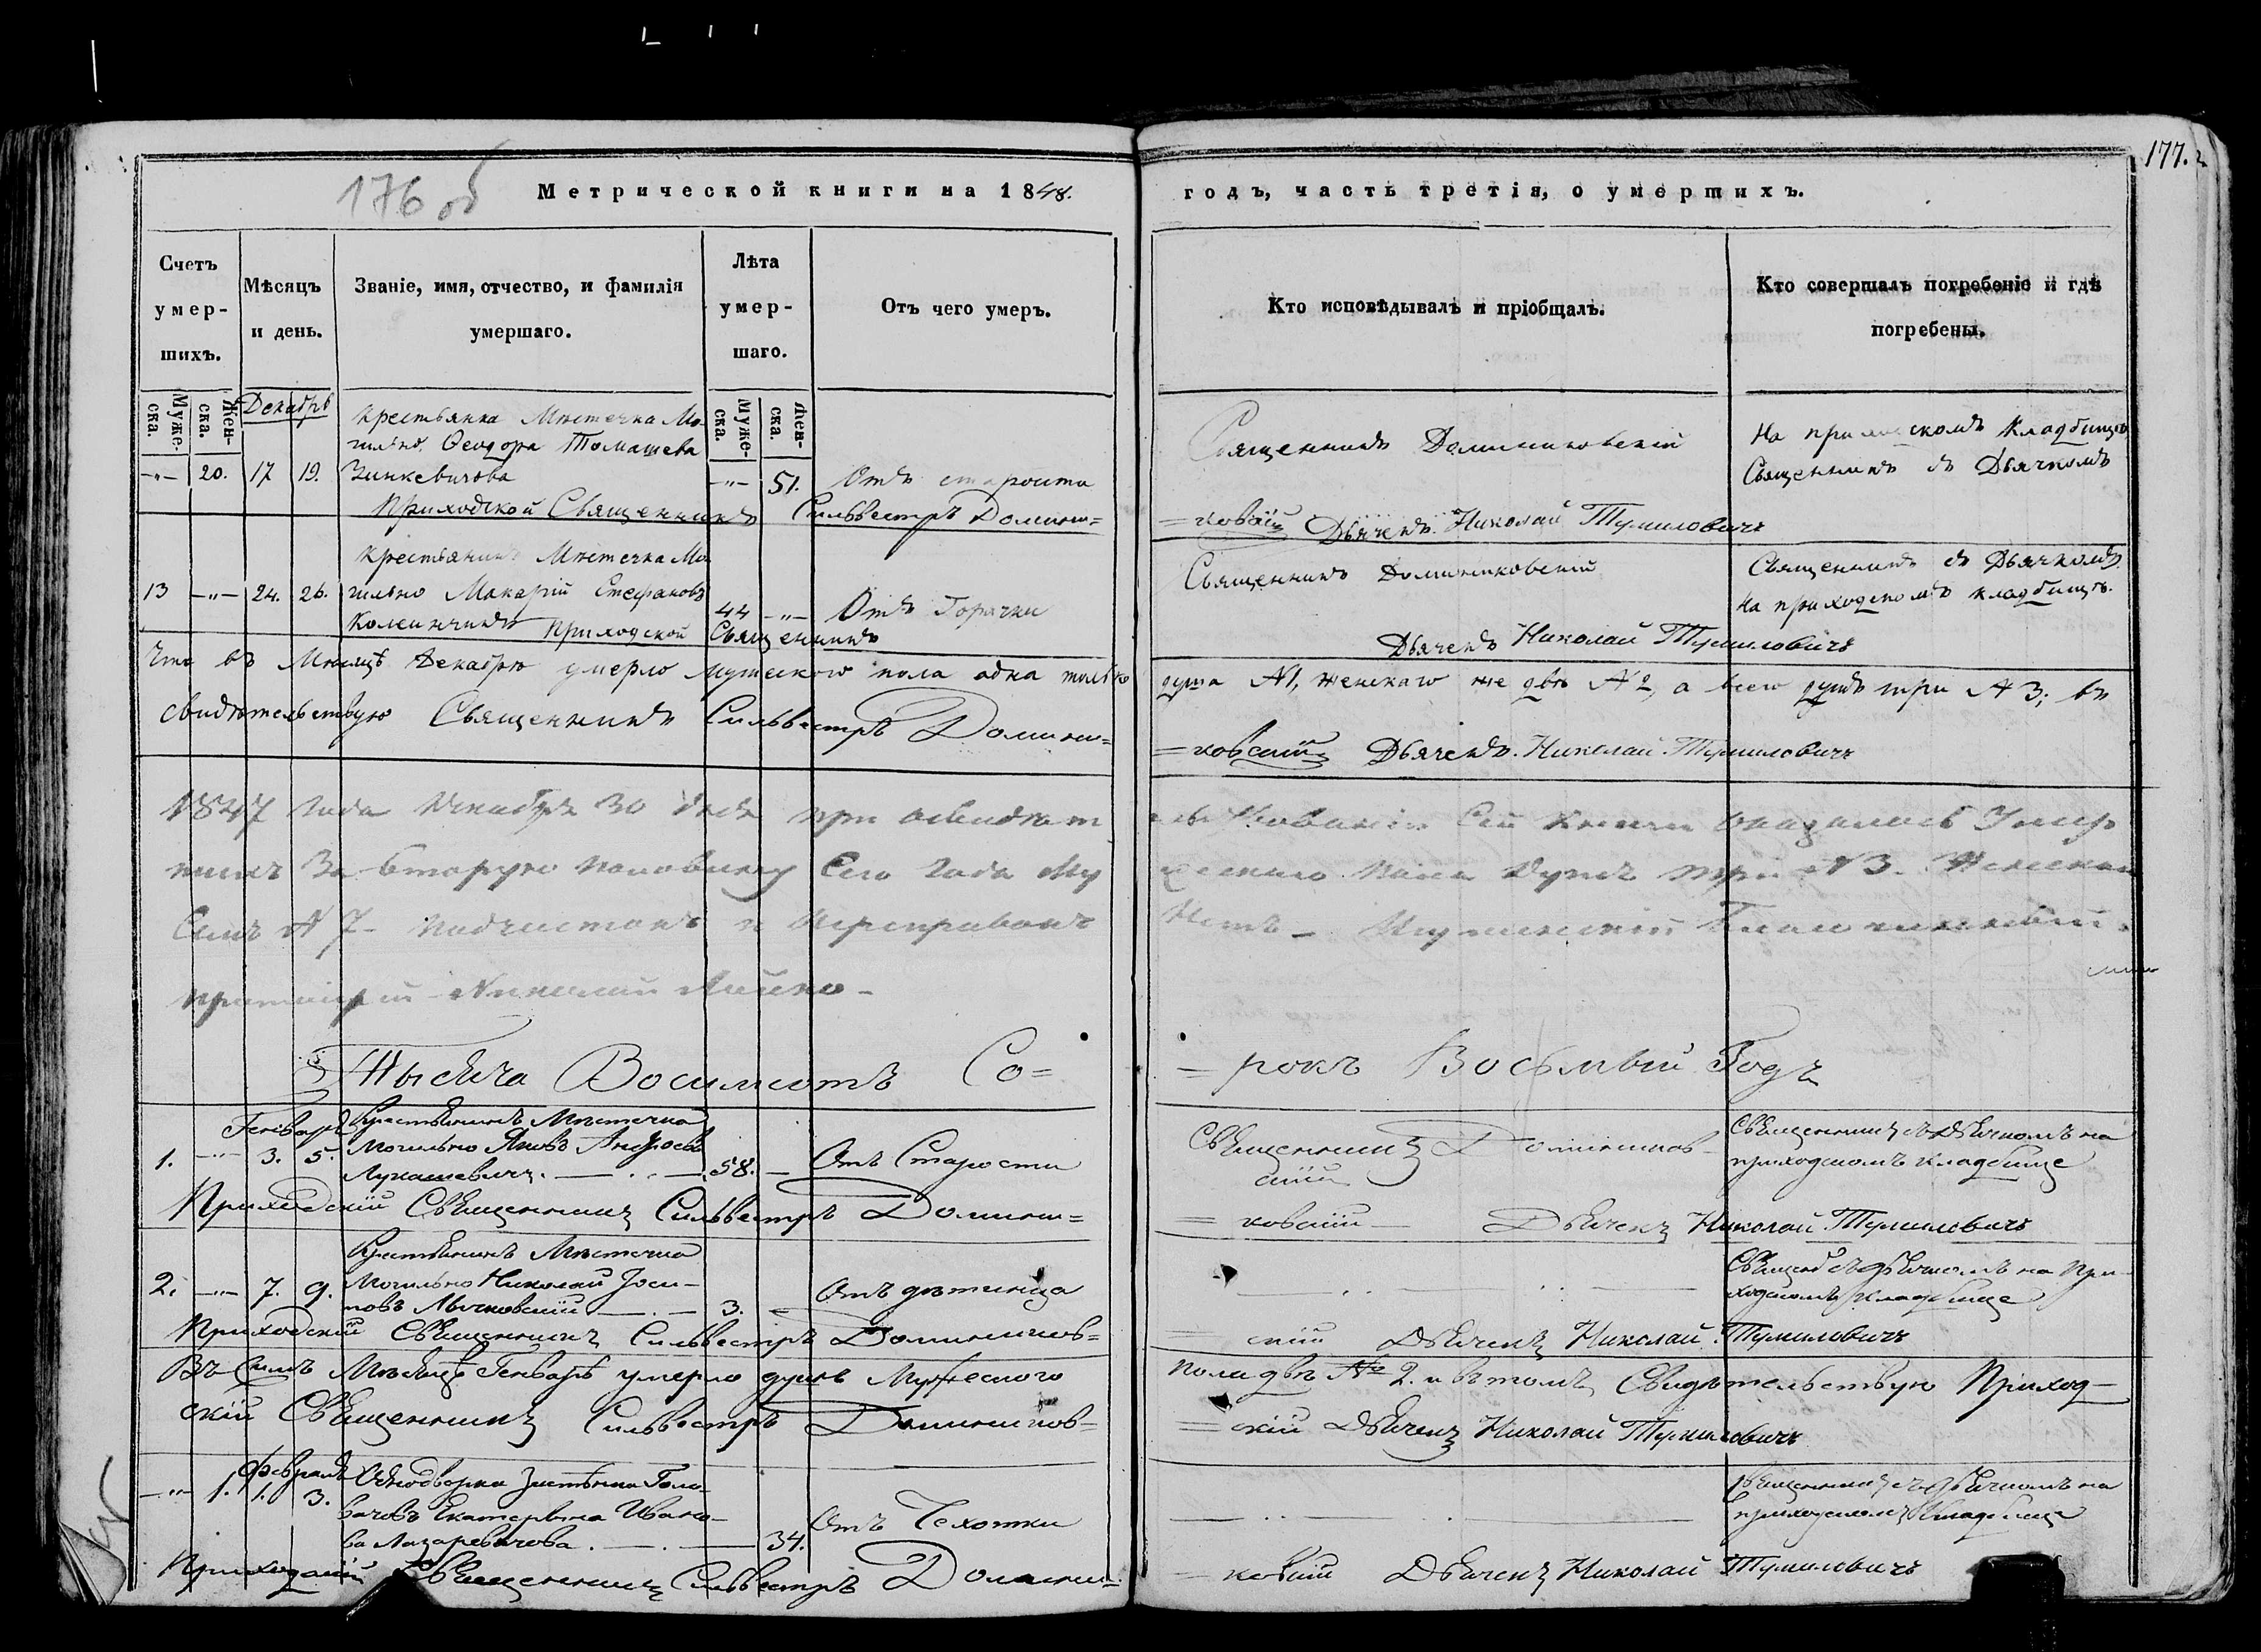 177.
176 об
Метрической книги на 1848.
годъ, часть третія, о умершихъ.
Счетъ умер-шихъ.
Мѣсяцъ и день.
Званіе, имя, отчество, и фамилія умершаго.
Лѣта умер-шаго.
Отъ чего умеръ.
Кто исповѣдывалъ и пріобщалъ.
Кто совершалъ погребеніе и гдѣ погребены.
Муже-ска.
Жен-ска.
Муже-ска.
Жен-ска.
Декабрь
Крестьянка Мѣстечка Мо-
гильно Ѳеодора Томашева
—"— 20. 17 19. Зинкевичова —"— 51. Отъ старости
Священникъ Доминиковскій
На приходскомъ Кладбищѣ
Священникъ съ Дьячкомъ
Приходской Священникъ Сильвестръ Домини=
=ковскій Дьячекъ Николай Тумиловичъ
Крестьянинъ Мѣстечка Мо
13 —"— 24. 26. гильно Макарій Стефановъ
44 —"— Отъ Горячки
Священникъ Доминиковскій
Священникъ съ Дьячкомъ
на приходскомъ кладбищѣ.
приходской Священникъ
Дьячекъ Николай Тумиловичъ
Что въ Мѣсяцѣ Декабрѣ умерло мужескаго пола одна только
душа №1, женскаго же двѣ №2, а всего душъ три №3; въ
свидѣтельствую Священникъ Сильвестръ Домини=
=ковскій Дьячекъ Николай Тумиловичъ
1847 года Декабря 30 дня при освидѣт
ельствованіи сей книги оказалось умер
шихъ за вторую половину сего года му
жескаго пола душъ три №3. Женска
Семь №7 - подчистокъ и переправокъ
Нетъ -
Николай
Тысяча Восимсотъ Со=
=рокъ Восьмый Годъ
Генварь
Крестьянинъ Мѣстечка
1. —"— 3. 5. Могильно Яковъ Андреевъ
Лукашевичъ. 58. — Отъ Старости
Священникъ Домиников-
скій
Священникъ съ Дьячкомъ на
приходскомъ кладбище
Приходскій Священникъ Сильвестръ Домини=
=ковскій — Дьячекъ Николай Тумиловичъ
Крестьянинъ Мѣстечка
2. —"— 7. 9. Могильно Николай Іоси-
повъ 3. — Отъ дѣтинца
Священ съ дьячкомъ на При-
ходскомъ Кладбище
Приходскій Священникъ Сильвестръ Домиников=
=скій Дьячекъ Николай Тумиловичъ
Въ Семъ Мѣсяцѣ Генварѣ умерло душъ Мужескаго
пола двѣ № 2. и въ томъ Свидѣтельствую Приход-
скій Священникъ Сильвестръ Домиников=
=скій Дьячекъ Николай Тумиловичъ
Февраль
—"— 1. 1. 3. Однодворка Застѣнка Голо-
вачовъ Екатерина Ивано-
ва Лазаревичова. — 34. Отъ Чехотки
Священникъ съ дьячкомъ на
приходскомъ Кладбище
Приходскій Священникъ Сильвестръ Домини=
=ковскій Дьячекъ Николай Тумиловичъ